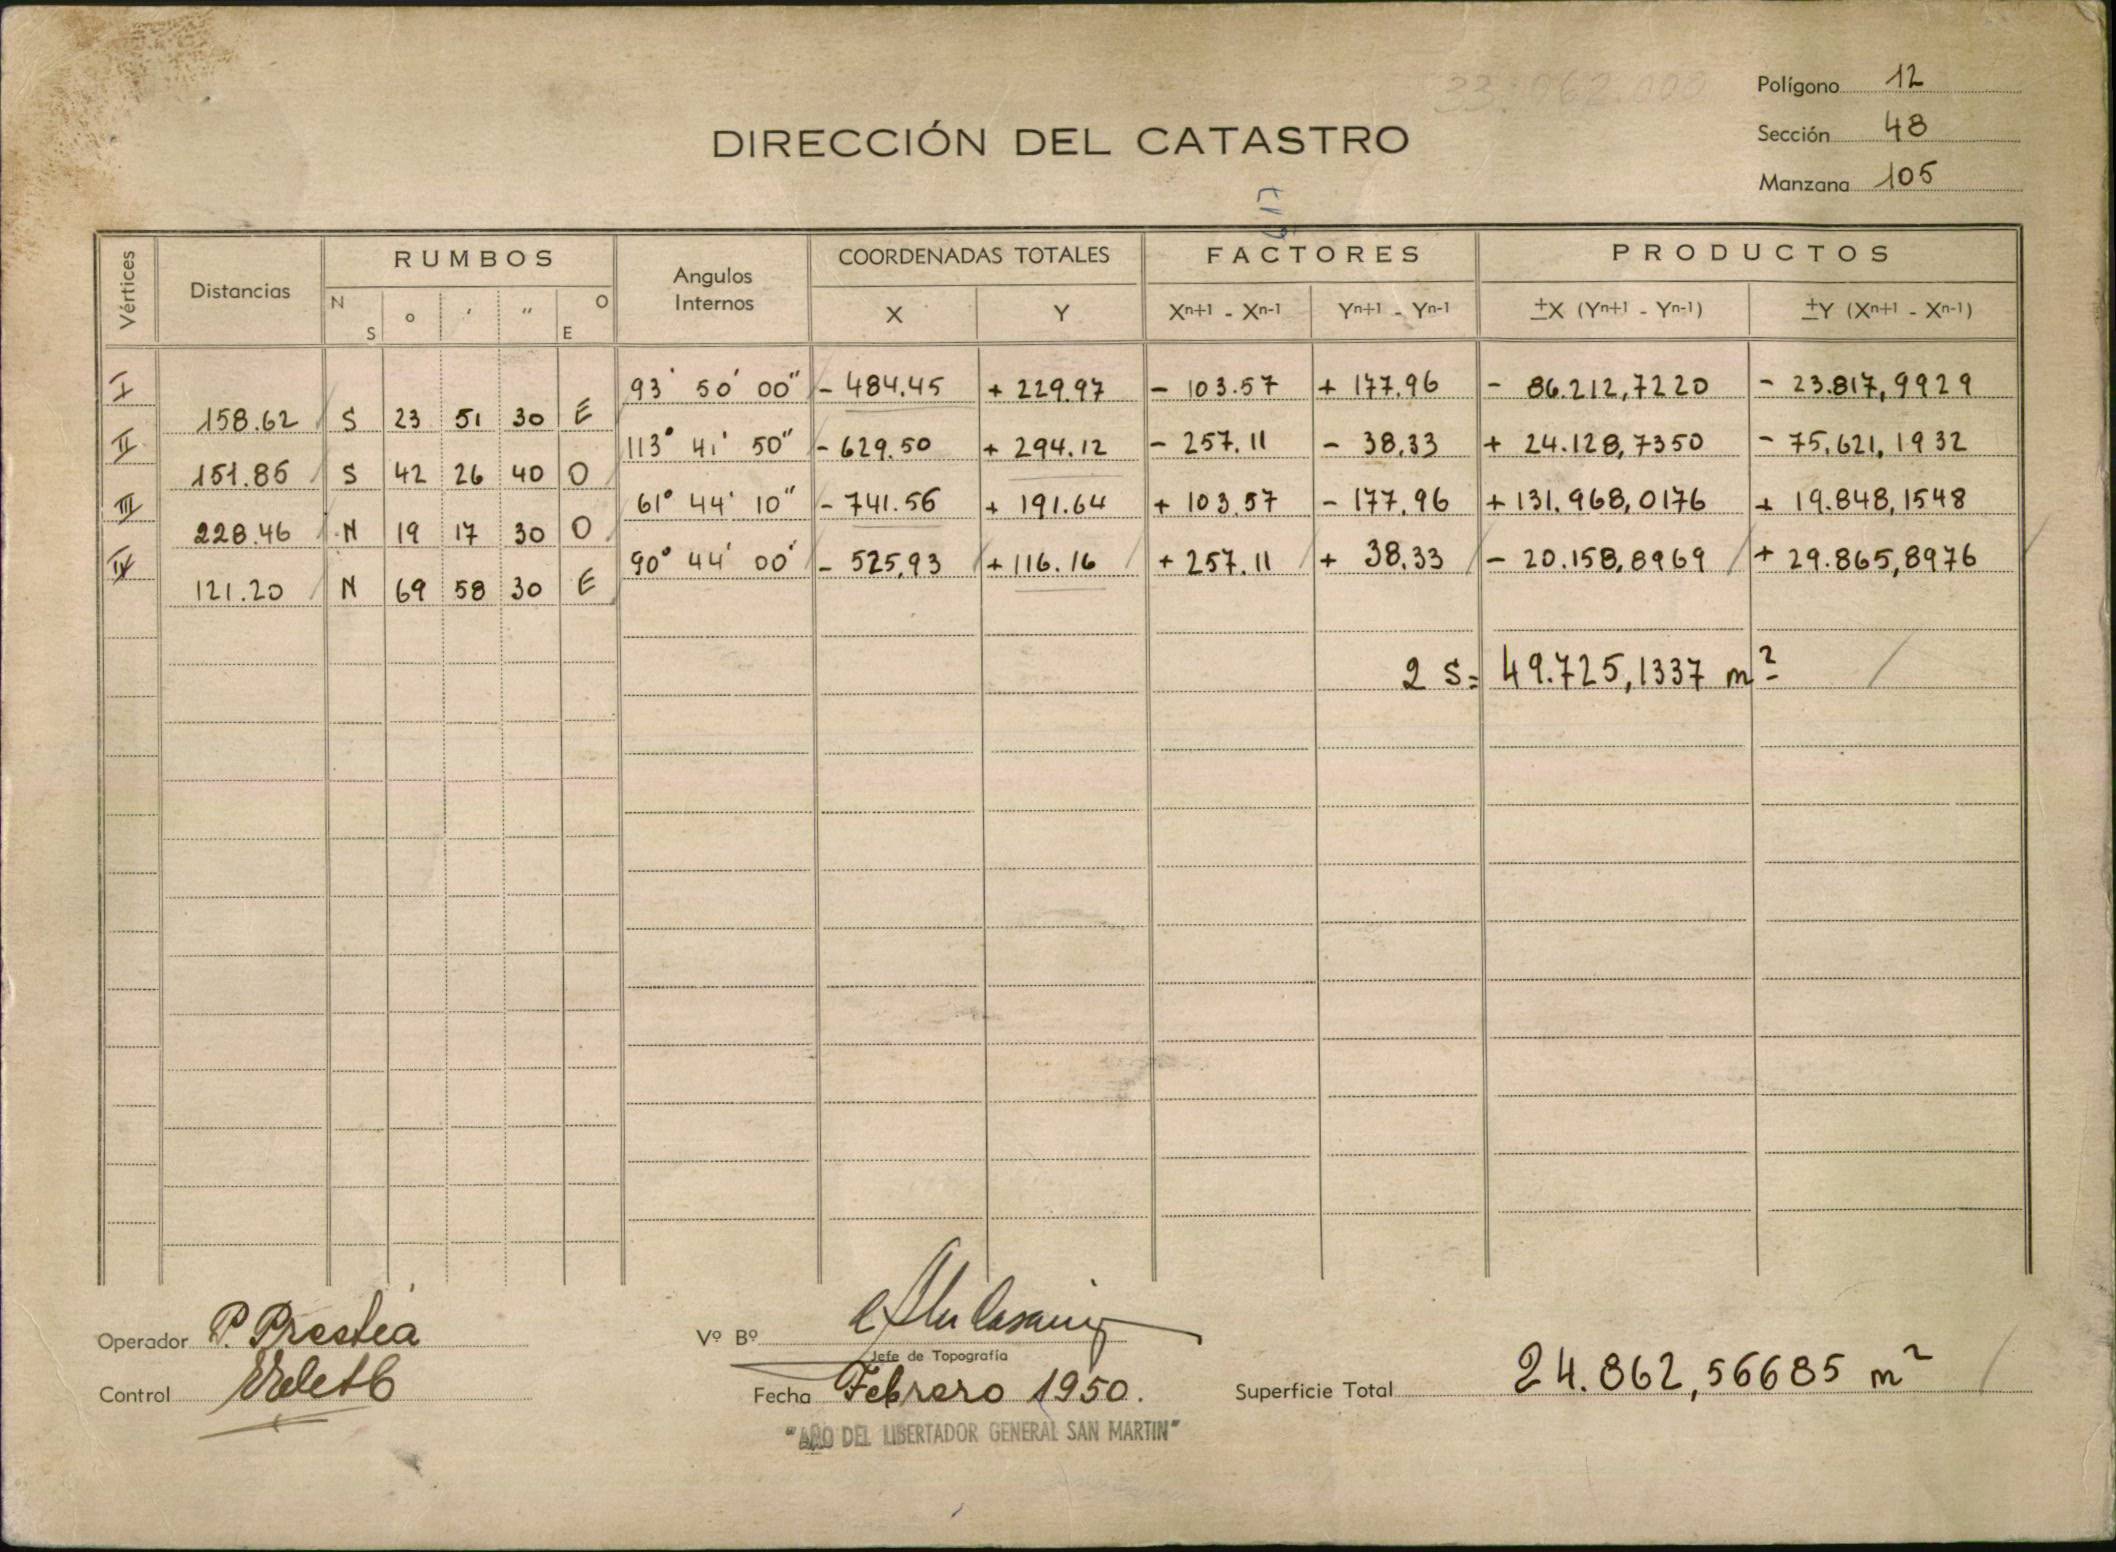 33.062.000
Polígono 12
DIRECCIÓN DEL CATASTRO
Sección 48
Manzana 105
617
Vértices Distancias RUMBOS Angulos Internos COORDENADAS TOTALES FACTORES PRODUCTOS
N S ° ′ ″ O E X Y Xn+1 - Xn-1 Yn+1 - Yn-1 ±X (Yn+1 - Yn-1) ±Y (Xn+1 - Xn-1)
I 93° 50′ 00″ - 484.45 + 229.97 - 103.57 + 177.96 - 86.212,7220 - 23.817,9929
158.62 S 23 51 30 E
II 113° 41′ 50″ - 629.50 + 294.12 - 257.11 - 38.33 + 24.128,7350 - 75.621,1932
151.85 S 42 26 40 O
III 61° 44′ 10″ - 741.56 + 191.64 + 103.57 - 177.96 + 131.968,0176 + 19.848,1548
228.46 N 19 17 30 O
IV 90° 44′ 00″ - 525,93 + 116.16 + 257.11 + 38.33 - 20.158,8969 + 29.865,8976
121.20 N 69 58 30 E
2 S= 49.725,1337 m²
Operador P. Prestia
Vº Bº
Jefe de Topografía
Control
Fecha Febrero 1950.
Superficie Total 24.862,56685 m²
"AÑO DEL LIBERTADOR GENERAL SAN MARTIN"